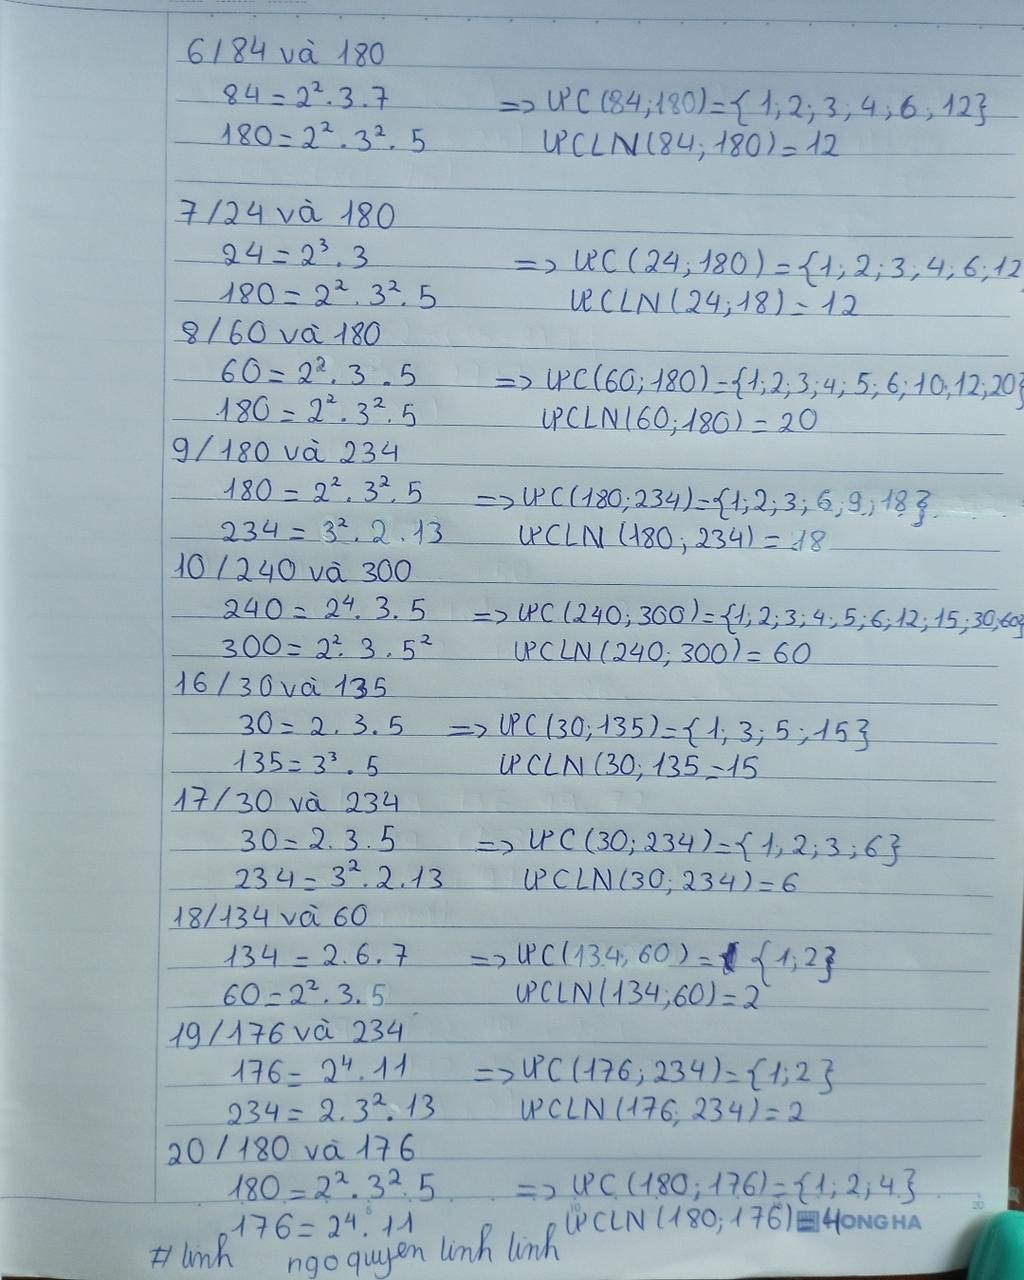 6/84 và 180
84 = 2². 3. 7 => ƯC(84; 180) = {1; 2; 3; 4; 6; 12}
180 = 2². 3². 5 ƯCLN(84; 180) = 12
7/24 và 180
24 = 2³. 3 => ƯC(24; 180) = {1; 2; 3; 4; 6; 12
180 = 2². 3². 5 ƯCLN(24; 18) = 12
8/60 và 180
60 = 2². 3. 5 => ƯC(60; 180) = {1; 2; 3; 4; 5; 6; 10; 12; 20}
180 = 2². 3². 5 ƯCLN(60; 180) = 20
9/180 và 234
180 = 2². 3². 5 => ƯC(180; 234) = {1; 2; 3; 6; 9; 18}
234 = 3². 2. 13 ƯCLN(180; 234) = 18
10/240 và 300
240 = 2⁴. 3. 5 => ƯC(240; 300) = {1; 2; 3; 4; 5; 6; 12; 15; 30; 60}
300 = 2². 3. 5² ƯCLN(240; 300) = 60
16/30 và 135
30 = 2. 3. 5 => ƯC(30; 135) = {1; 3; 5; 15}
135 = 3³. 5 ƯCLN(30; 135 = 15
17/30 và 234
30 = 2. 3. 5 => ƯC(30; 234) = {1; 2; 3; 6}
234 = 3². 2. 13 ƯCLN(30; 234) = 6
18/134 và 60
134 = 2. 6. 7 => ƯC(134; 60) = {1; 2}
60 = 2². 3. 5 ƯCLN(134; 60) = 2
19/176 và 234
176 = 2⁴. 11 => ƯC(176; 234) = {1; 2}
234 = 2. 3². 13 ƯCLN(176; 234) = 2
20/180 và 176
180 = 2². 3². 5 => ƯC(180; 176) = {1; 2; 4}
176 = 2⁴. 11 ƯCLN(180; 176) = 4
HONG HA
# linh ngo quyen linh linh